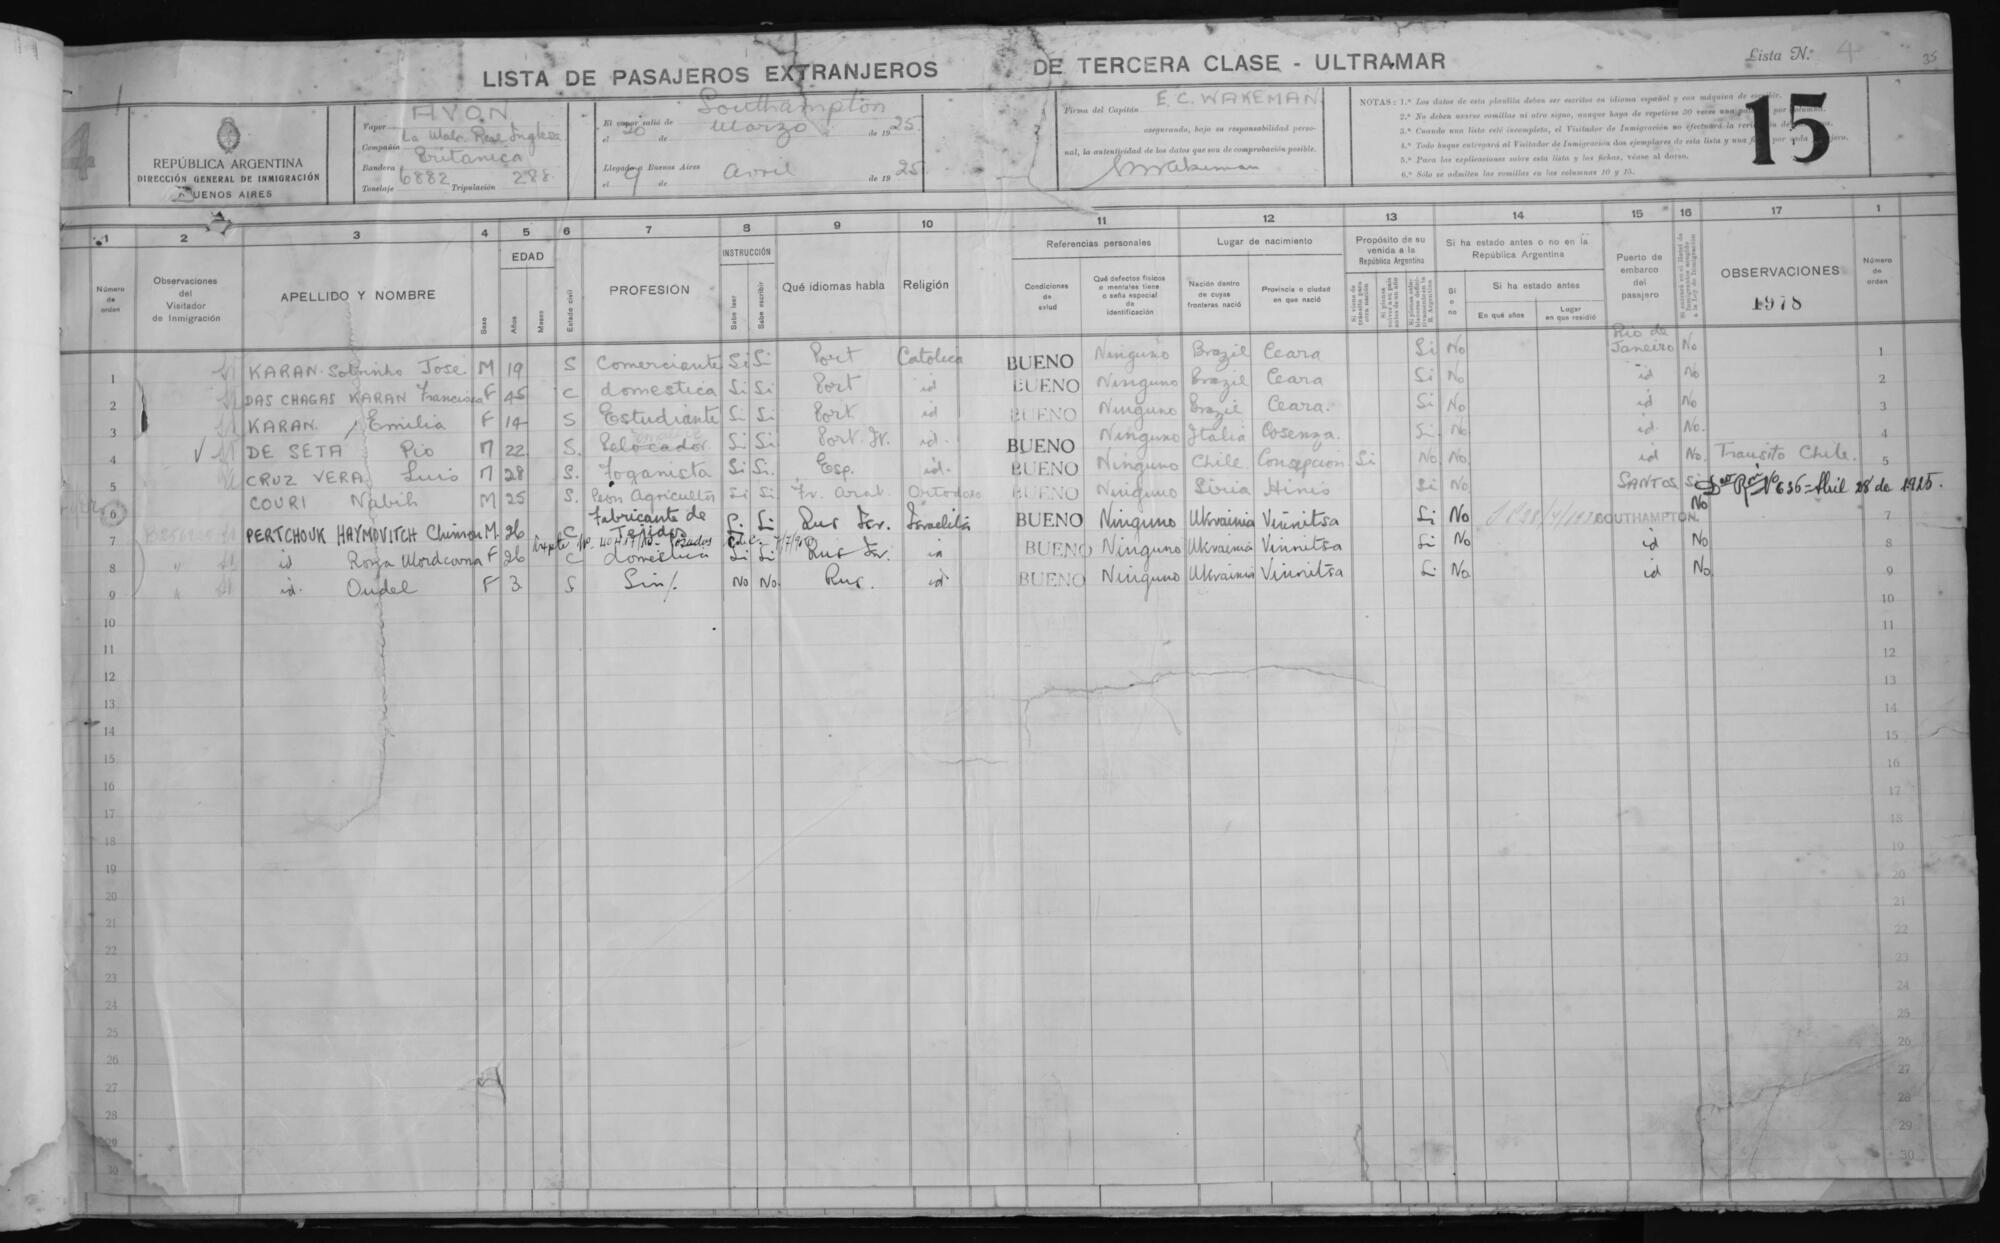 LISTA DE PASAJEROS EXTRANJEROS DE TERCERA CLASE - ULTRAMAR
Lista N.º 4
35
4
REPÚBLICA ARGENTINA
DIRECCIÓN GENERAL DE INMIGRACIÓN
BUENOS AIRES
Vapor AVON
Compañía La Mala Real Inglesa
Bandera Britanica
Tonelaje 6882 Tripulación 288
El vapor salió de Southampton
el 20 de Marzo de 1925
Llegado a Buenos Aires
el 9 de Avril de 1925
Firma del Capitán E. C. WAKEMAN
asegurando, bajo su responsabilidad perso-
nal, la autenticidad de los datos que son de comprobación posible.
NOTAS: 1.ª Los datos de esta planilla deben ser escritos en idioma español y con máquina de escribir.
2.ª No deben usarse comillas ni otro signo, aunque haya de repetirse 30 veces una por columna.
3.ª Cuando una lista esté incompleta, el Visitador de Inmigración no efectuará la
4.ª Todo buque entregará al Visitador de Inmigración dos ejemplares de esta lista y una por cada
5.ª Para las explicaciones sobre esta lista y las fichas, véase al dorso.
6.ª Sólo se admiten las comillas en las columnas 10 y 15.
15
1 2 3 4 5 6 7 8 9 10 11 12 13 14 15 16 17 1
Número de orden
Observaciones del Visitador de Inmigración
APELLIDO Y NOMBRE
Sexo
EDAD
Años
Meses
Estado civil
PROFESION
INSTRUCCIÓN
Sabe leer
Sabe escribir
Qué idiomas habla
Religión
Referencias personales
Condiciones de salud
Qué defectos físicos o mentales tiene o seña especial de identificación
Lugar de nacimiento
Nación dentro de cuyas fronteras nació
Provincia o ciudad en que nació
Propósito de su venida a la República Argentina
Si viene de tránsito para otra nación
Si ha estado antes o no en la República Argentina
Si o no
Si ha estado antes
En qué años
Lugar en que residió
Puerto de embarco del pasajero
OBSERVACIONES
1978
Número de orden
1 KARAN Sobrinho Jose M 19 S Comerciante Si Si Port Catolica BUENO Ninguno Brazil Ceara Si No Rio de Janeiro No 1
2 DAS CHAGAS KARAN Francisca F 45 C domestica Si Si Port id BUENO Ninguno Brazil Ceara Si No id No 2
3 KARAN, Emilia F 14 S Estudiante Si Si Port id BUENO Ninguno Brazil Ceara. Si No id No 3
4 DE SETA Pio M 22 S. Si Si Port. Fr. id. BUENO Ninguno Italia Cosenza. Si No id No. 4
5 CRUZ VERA Luis M 28 S. Foganista Si Si. Esp. id. BUENO Ninguno Chile Concepcion Si No No. id No. Transito Chile. 5
6 COURI Nabih M 25 S. Peon Agricultor Si Si Fr. Arab. Ortodoxo BUENO Ninguno Siria Hinis Si No SANTOS Si 636 = Abril 28 de 1925.
7 PERTCHOUK HAYMOVITCH Chimon M. 26 C Fabricante de Tejidos Si Si Rus Fr. Israelita BUENO Ninguno Ukrainia Vinnitsa Si No SOUTHAMPTON. No 7
8 id Rosa Wordcovna F 26 C domestica Si Si Rus Fr. id BUENO Ninguno Ukrainia Vinnitsa Si No id No 8
9 id. Oudel F 3 S Sin/. No No. Rus. id BUENO Ninguno Ukrainia Vinnitsa Si No. id No. 9
10 10
11 11
12 12
13 13
14 14
15 15
16 16
17 17
18 18
19 19
20 20
21 21
22 22
23 23
24 24
25 25
26 26
27 27
28 28
29 29
30 30